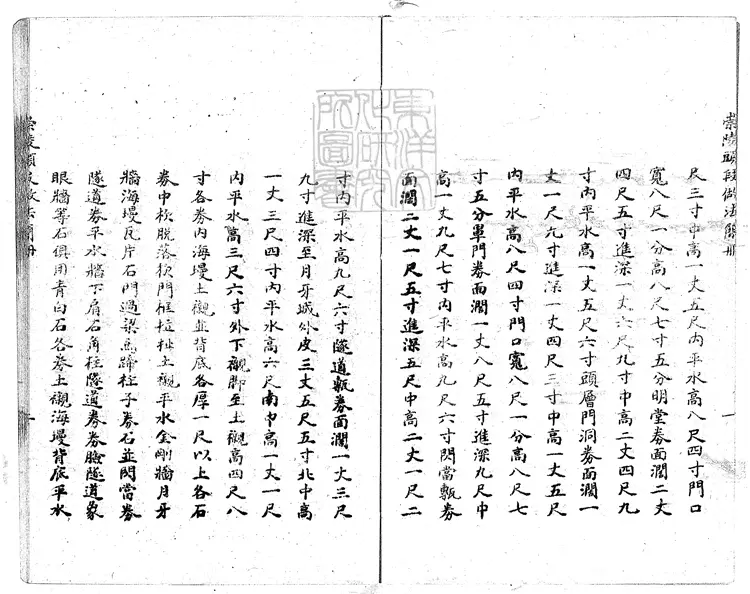 崇陵頭段做法簡冊
尺三寸中高一丈五尺內平水高八尺四寸門口
寬八尺一分高八尺七寸五分明堂券面濶二丈
四尺五寸進深一丈六尺九寸中高二丈四尺九
寸內平水高一丈五尺六寸頭層門洞券面濶一
丈一尺九寸進深一丈四尺三寸中高一丈五尺
內平水高八尺四寸門口寬八尺一分高八尺七
寸五分單門券面濶一丈八尺五寸進深九尺中
高一丈九尺七寸內平水高九尺六寸閃當甎券
面濶二丈一尺五寸進深五尺中高二丈一尺二
寸內平水高九尺六寸隧道甎券面濶一丈三尺
九寸進深至月牙城外皮三丈五尺五寸北中高
一丈三尺四寸內平水高六尺南中高一丈一尺
內平水高三尺六寸外下襯腳至土襯高四尺八
寸各券內海墁土襯並背底各厚一尺以上各石
券巾枕脫落枕門框檻土襯平水金剛牆月牙
牆海墁瓦片石門過梁馬蹄柱子券石並閃當券
隧道券平水牆下肩石角柱隧道券券臉隧道象
眼牆等石俱用青白石各券土襯海墁背底平水
崇陵頭段做法簡冊
東洋文化研究所圖書